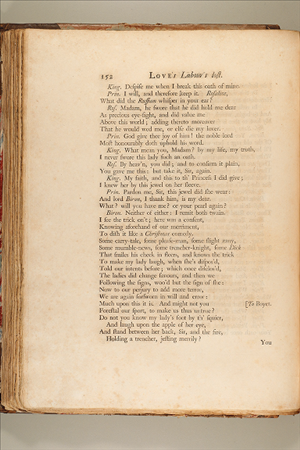 152 LOVE's Labour's lost.
King. Despise me when I break this oath of mine.
Prin. I will, and therefore keep it. Rosaline,
What did the Russian whisper in your ear?
Ros. Madam, he swore that he did hold me dear
As precious eye-sight, and did value me
Above this world; adding thereto moreover
That he would wed me, or else die my lover.
Prin. God give thee joy of him! the noble lord
Most honourably doth uphold his word.
King. What mean you, Madam? by my life, my troth,
I never swore this lady such an oath.
Ros. By heav'n, you did; and to confirm it plain,
You gave me this: but take it, Sir, again.
King. My faith, and this to th' Princess I did give;
I knew her by this jewel on her sleeve.
Prin. Pardon me, Sir, this jewel did she wear:
And lord Biron, I thank him, is my dear.
What? will you have me? or your pearl again?
Biron. Neither of either: I remit both twain.
I see the trick on't; here was a consent,
Knowing aforehand of our merriment,
To dash it like a Christmas comedy.
Some carry-tale, some please-man, some slight zany,
Some mumble-news, some trencher-knight, some Dick
That smiles his cheek in jeers, and knows the trick
To make my lady laugh, when she's dispos'd,
Told our intents before; which once disclos'd,
The ladies did change favours, and then we
Following the signs, woo'd but the sign of she:
Now to our perjury to add more terror,
We are again forsworn in will and error:
Much upon this it is. And might not you [To Boyet.
Forestal our sport, to make us thus untrue?
Do not you know my lady's foot by th' squier,
And laugh upon the apple of her eye,
And stand between her back, Sir, and the fire,
Holding a trencher, jesting merrily?
You